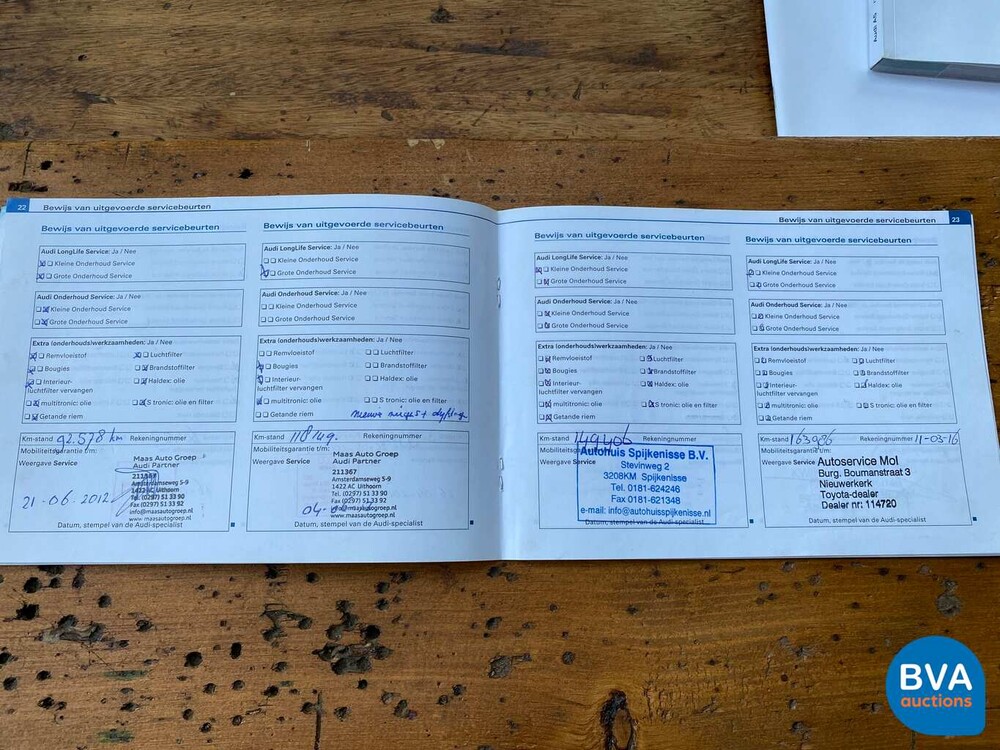 22 Bewijs van uitgevoerde servicebeurten
Bewijs van uitgevoerde servicebeurten
Audi LongLife Service: Ja / Nee
Kleine Onderhoud Service
Grote Onderhoud Service
Audi Onderhoud Service: Ja / Nee
Kleine Onderhoud Service
Grote Onderhoud Service
Extra (onderhouds)werkzaamheden: Ja / Nee
Remvloeistof Luchtfilter
Bougies Brandstoffilter
Interieur- Haldex: olie
luchtfilter vervangen
multitronic: olie S tronic: olie en filter
Getande riem
Km-stand 92.578 km Rekeningnummer
Mobiliteitsgarantie t/m:
Weergave Service
Maas Auto Groep
Audi Partner
211367
Amsterdamseweg 5-9
1422 AC Uithoorn
Tel. (0297) 51 33 90
Fax (0297) 51 33 92
info@maasautogroep.nl
www.maasautogroep.nl
21-06.2012
Datum, stempel van de Audi-specialist
Bewijs van uitgevoerde servicebeurten
Audi LongLife Service: Ja / Nee
Kleine Onderhoud Service
Grote Onderhoud Service
Audi Onderhoud Service: Ja / Nee
Kleine Onderhoud Service
Grote Onderhoud Service
Extra (onderhouds)werkzaamheden: Ja / Nee
Remvloeistof Luchtfilter
Bougies Brandstoffilter
Interieur- Haldex: olie
luchtfilter vervangen
multitronic: olie S tronic: olie en filter
Getande riem
Km-stand Rekeningnummer
Mobiliteitsgarantie t/m:
Weergave Service
Maas Auto Groep
Audi Partner
211367
Amsterdamseweg 5-9
1422 AC Uithoorn
Tel. (0297) 51 33 90
Fax (0297) 51 33 92
info@maasautogroep.nl
www.maasautogroep.nl
Datum, stempel van de Audi-specialist
Bewijs van uitgevoerde servicebeurten 23
Bewijs van uitgevoerde servicebeurten
Audi LongLife Service: Ja / Nee
Kleine Onderhoud Service
Grote Onderhoud Service
Audi Onderhoud Service: Ja / Nee
Kleine Onderhoud Service
Grote Onderhoud Service
Extra (onderhouds)werkzaamheden: Ja / Nee
Remvloeistof Luchtfilter
Bougies Brandstoffilter
Interieur- Haldex: olie
luchtfilter vervangen
multitronic: olie S tronic: olie en filter
Getande riem
Km-stand 149406 Rekeningnummer
Mobiliteitsgarantie t/m:
Weergave Service
Autohuis Spijkenisse B.V.
Stevinweg 2
3208KM Spijkenisse
Tel. 0181-624246
Fax 0181-621348
e-mail: info@autohuisspijkenisse.nl
Datum, stempel van de Audi-specialist
Bewijs van uitgevoerde servicebeurten
Audi LongLife Service: Ja / Nee
Kleine Onderhoud Service
Grote Onderhoud Service
Audi Onderhoud Service: Ja / Nee
Kleine Onderhoud Service
Grote Onderhoud Service
Extra (onderhouds)werkzaamheden: Ja / Nee
Remvloeistof Luchtfilter
Bougies Brandstoffilter
Interieur- Haldex: olie
luchtfilter vervangen
multitronic: olie S tronic: olie en filter
Getande riem
Km-stand 163986 Rekeningnummer 11-03-16
Mobiliteitsgarantie t/m:
Weergave Service
Autoservice Mol
Burg. Boumanstraat 3
Nieuwerkerk
Toyota-dealer
Dealer nr: 114720
Datum, stempel van de Audi-specialist
BVA
auctions